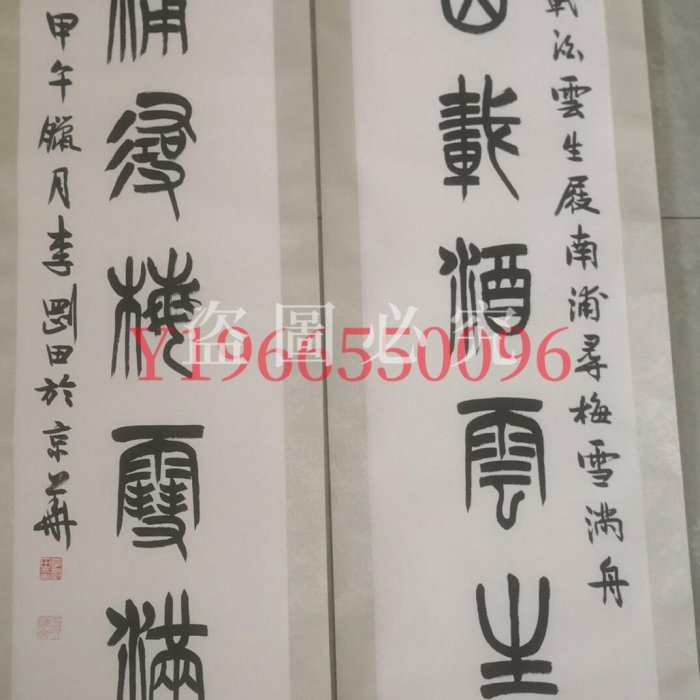 載酒雲生屐南浦尋梅雪滿舟
載酒雲生
浦尋梅雪滿
甲午臘月李剛田於京華
盜圖必究
Y1966550096